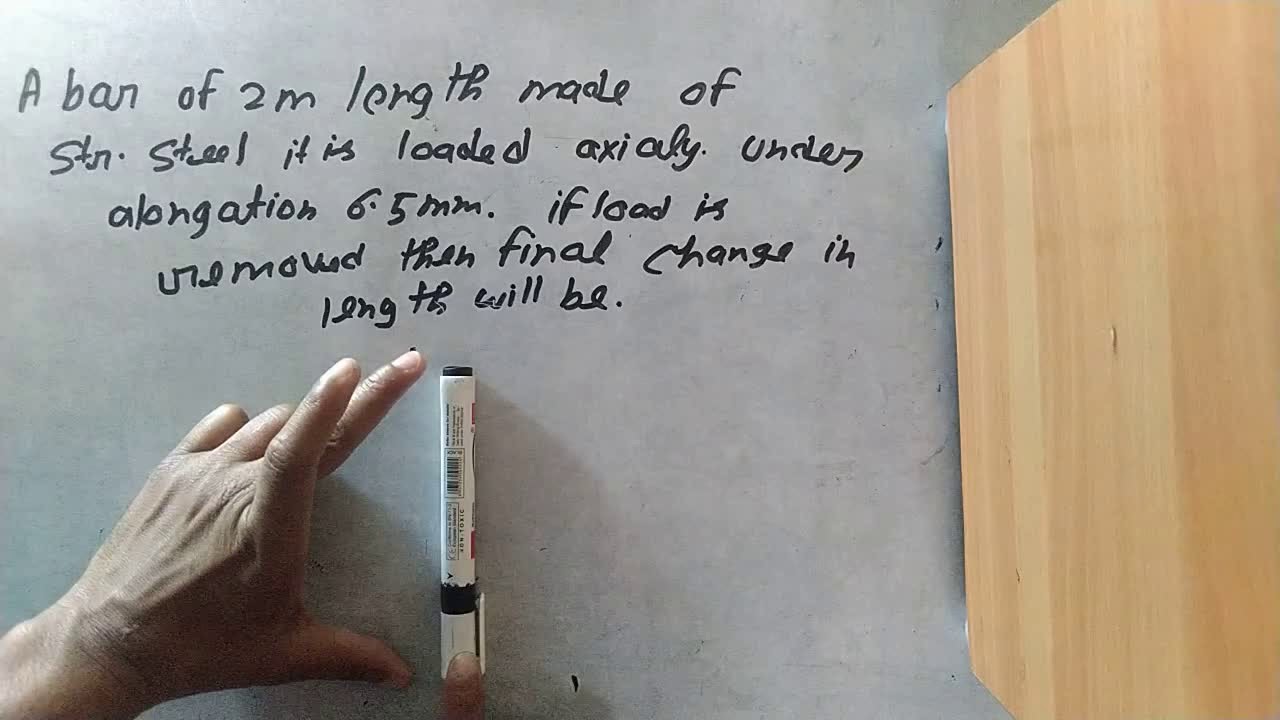 A bar of 2m length made of
Str. Steel it is loaded axialy. under
alongation 6.5mm. if load is
removed then final change in
length will be.
NON-TOXIC